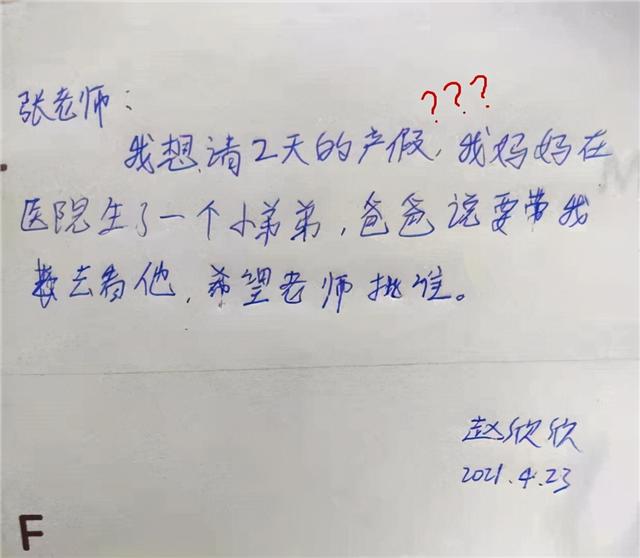 张老师:
???
我想请2天的产假,我妈妈在
医院生了一个小弟弟,爸爸说要带我
去看他,希望老师批准。
赵欣欣
2021.4.23
F